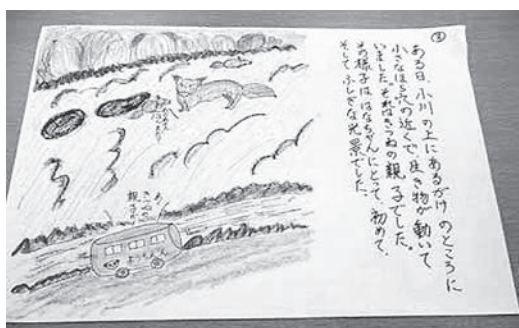 ③
ある日、小川の上にあるがけのところに
小さなほら穴の近くで生き物が動いて
いました。それはきつねの親子でした。
その様子は、はなちゃんにとって、初めて、
そしてふしぎな光景でした。
きつねの
親子